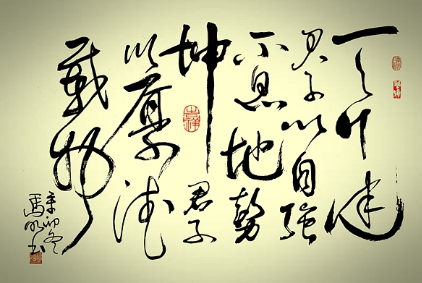 天行健
君子以自强
不息地势
坤君子
以厚德
載物
辛卯冬